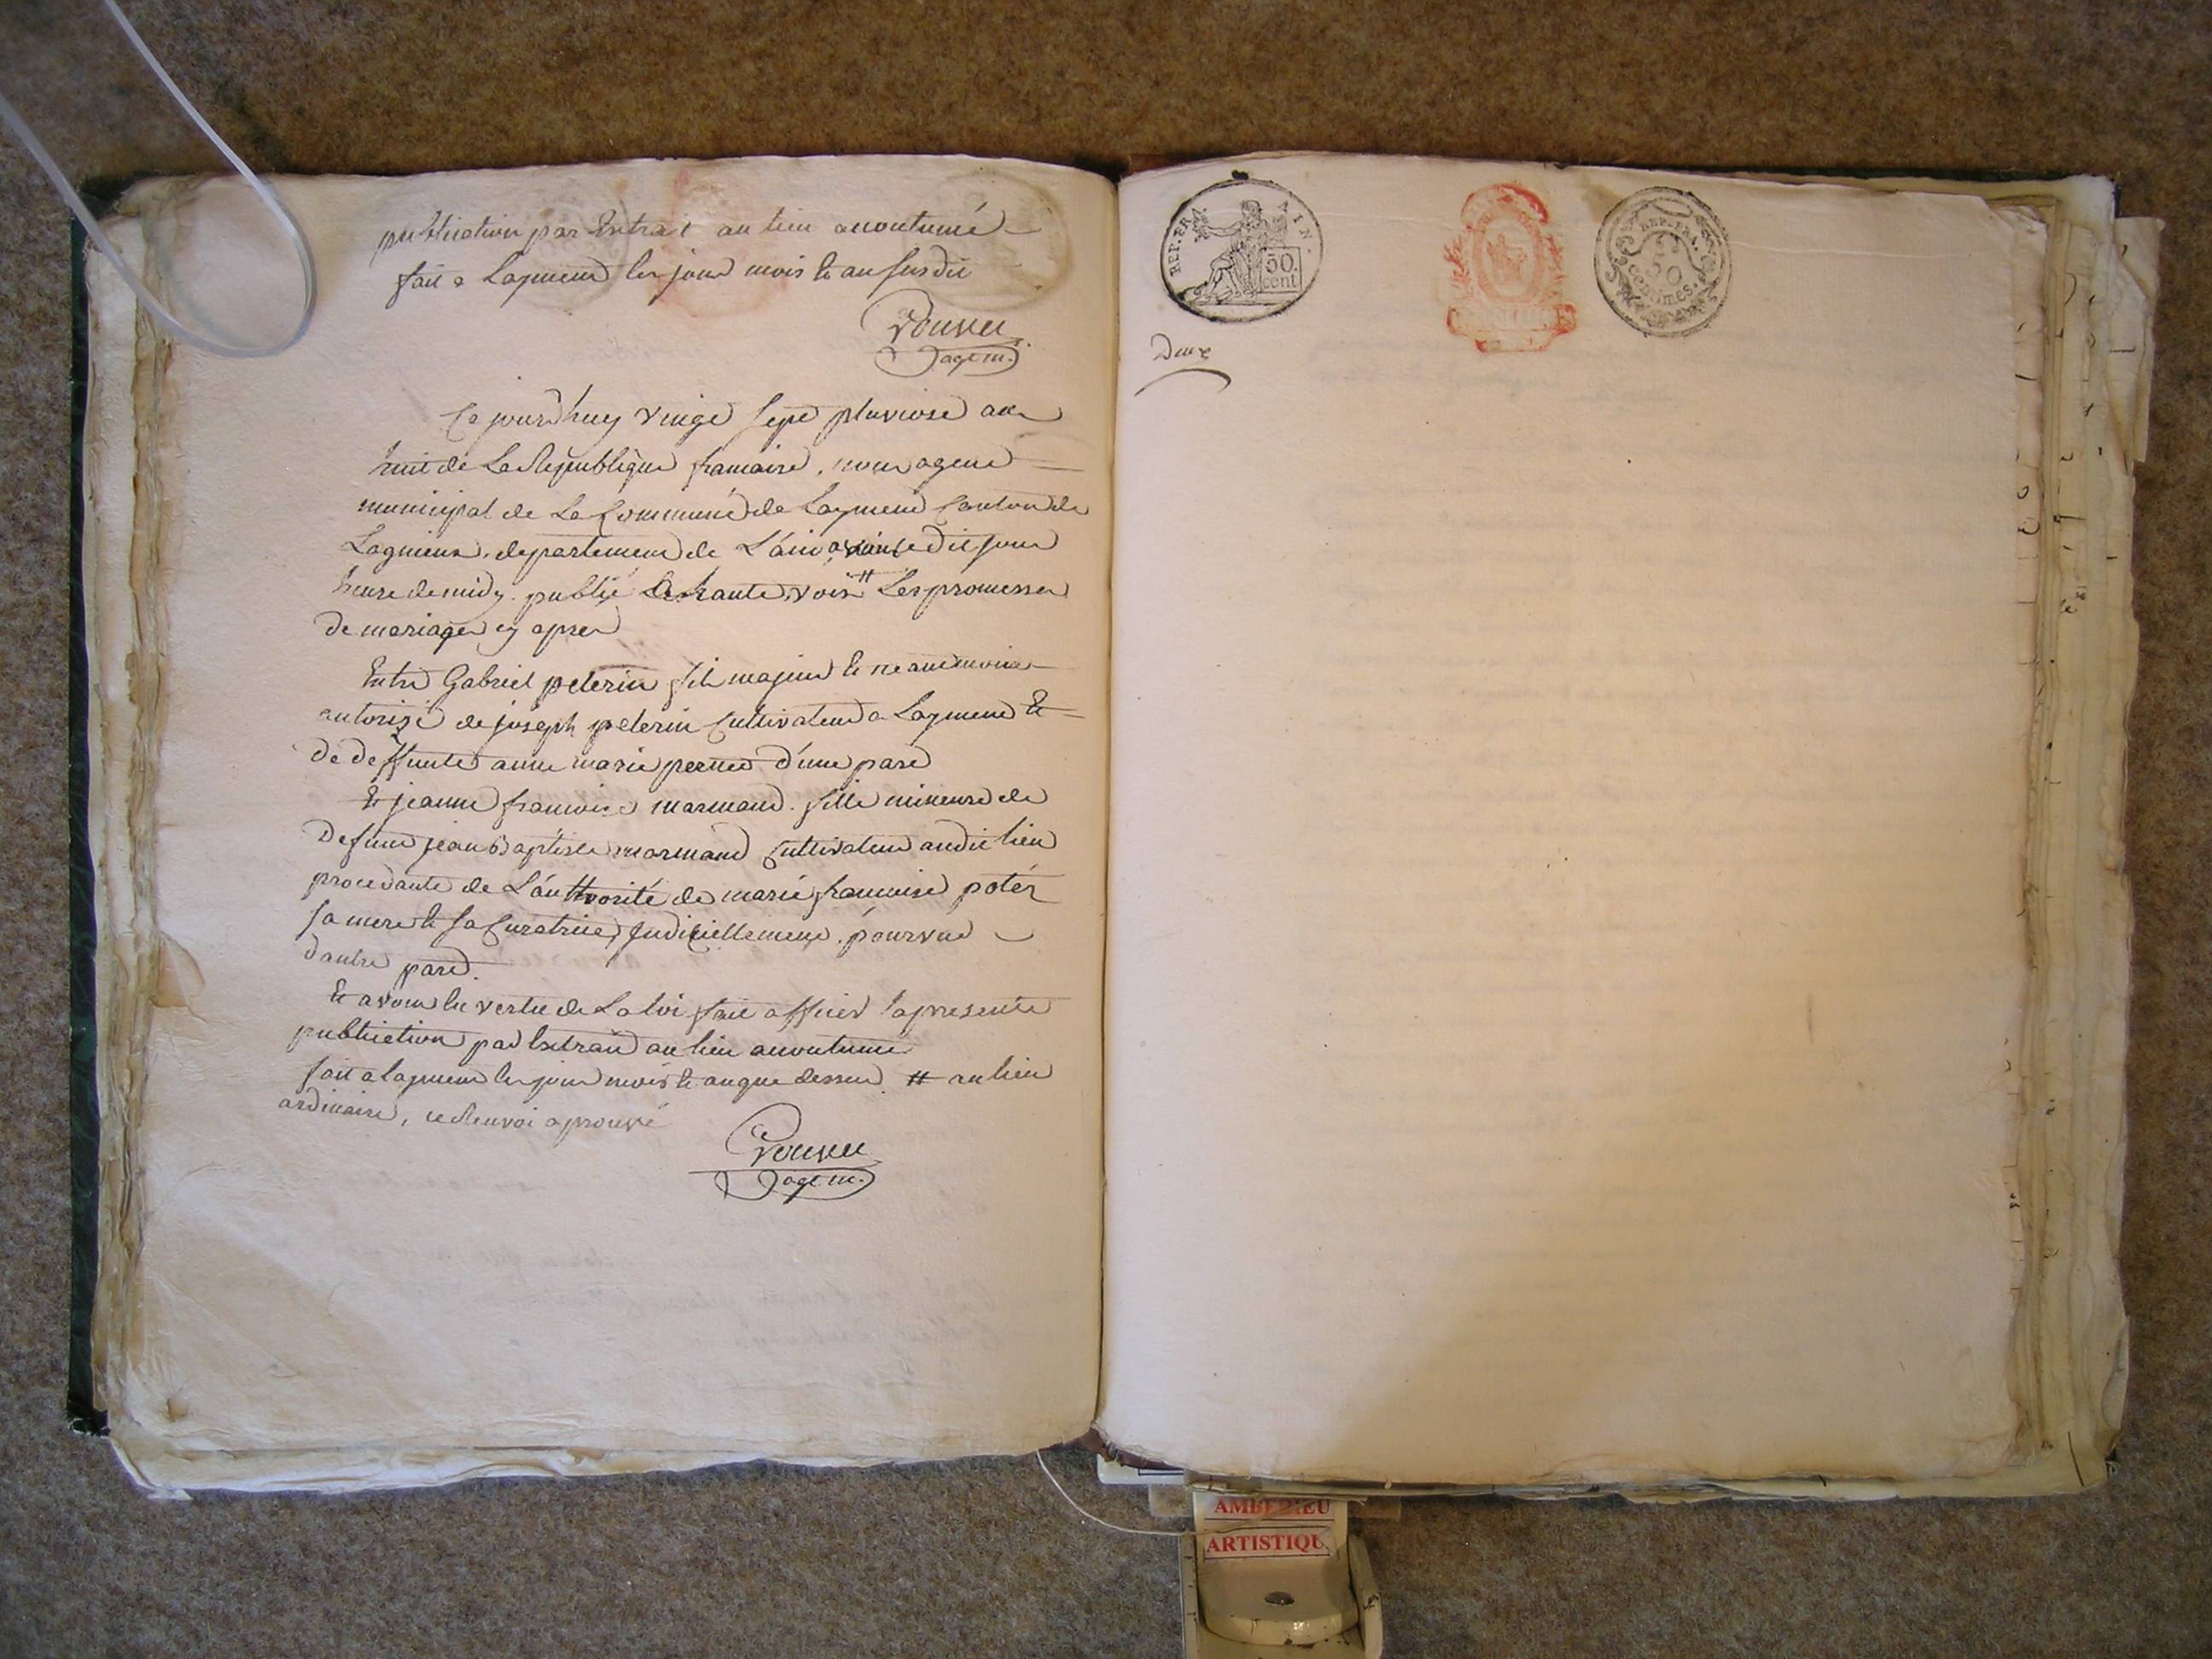 publication par Extrait au lieu acoutumé
fait a Laymend les jour mois & an susdit
Rouyer
age m.
Ce jourdhuy vingt sept pluviose an
huit de La République francaise, nous agend
municipal de La Commune de Laymend Canton de
Lagnieux, departement de L'ain avons ce dit jour
heure de midy publié a haute voix # Les promesses
de mariages cy apres
Entre Gabriel peterin fils majeur & neanmoins
autorizé de joseph peterin Cultivateur a Laymend Et
de deffunte anne marie d'une part
Et jeanne francoise marmand fille mineure de
Defunt jean Baptiste marmand Cultivateur audit lieu
procedante de L'authorité de marie francoise
sa mere & sa Curatrice judiciellement pourvue
d'autre part.
Et avons En vertu de La loi fait afficer la presente
publication par Extrait au lieu acoutumé
fait a laymend les jour mois & an que dessus # au lieu
ordinaire, ce Renvoi aprouvé
Rouyer
age m.
REP. FRA.
50.
cent.
REP. FRA.
50
centimes.
Deux
AMBERIEU
ARTISTIQU